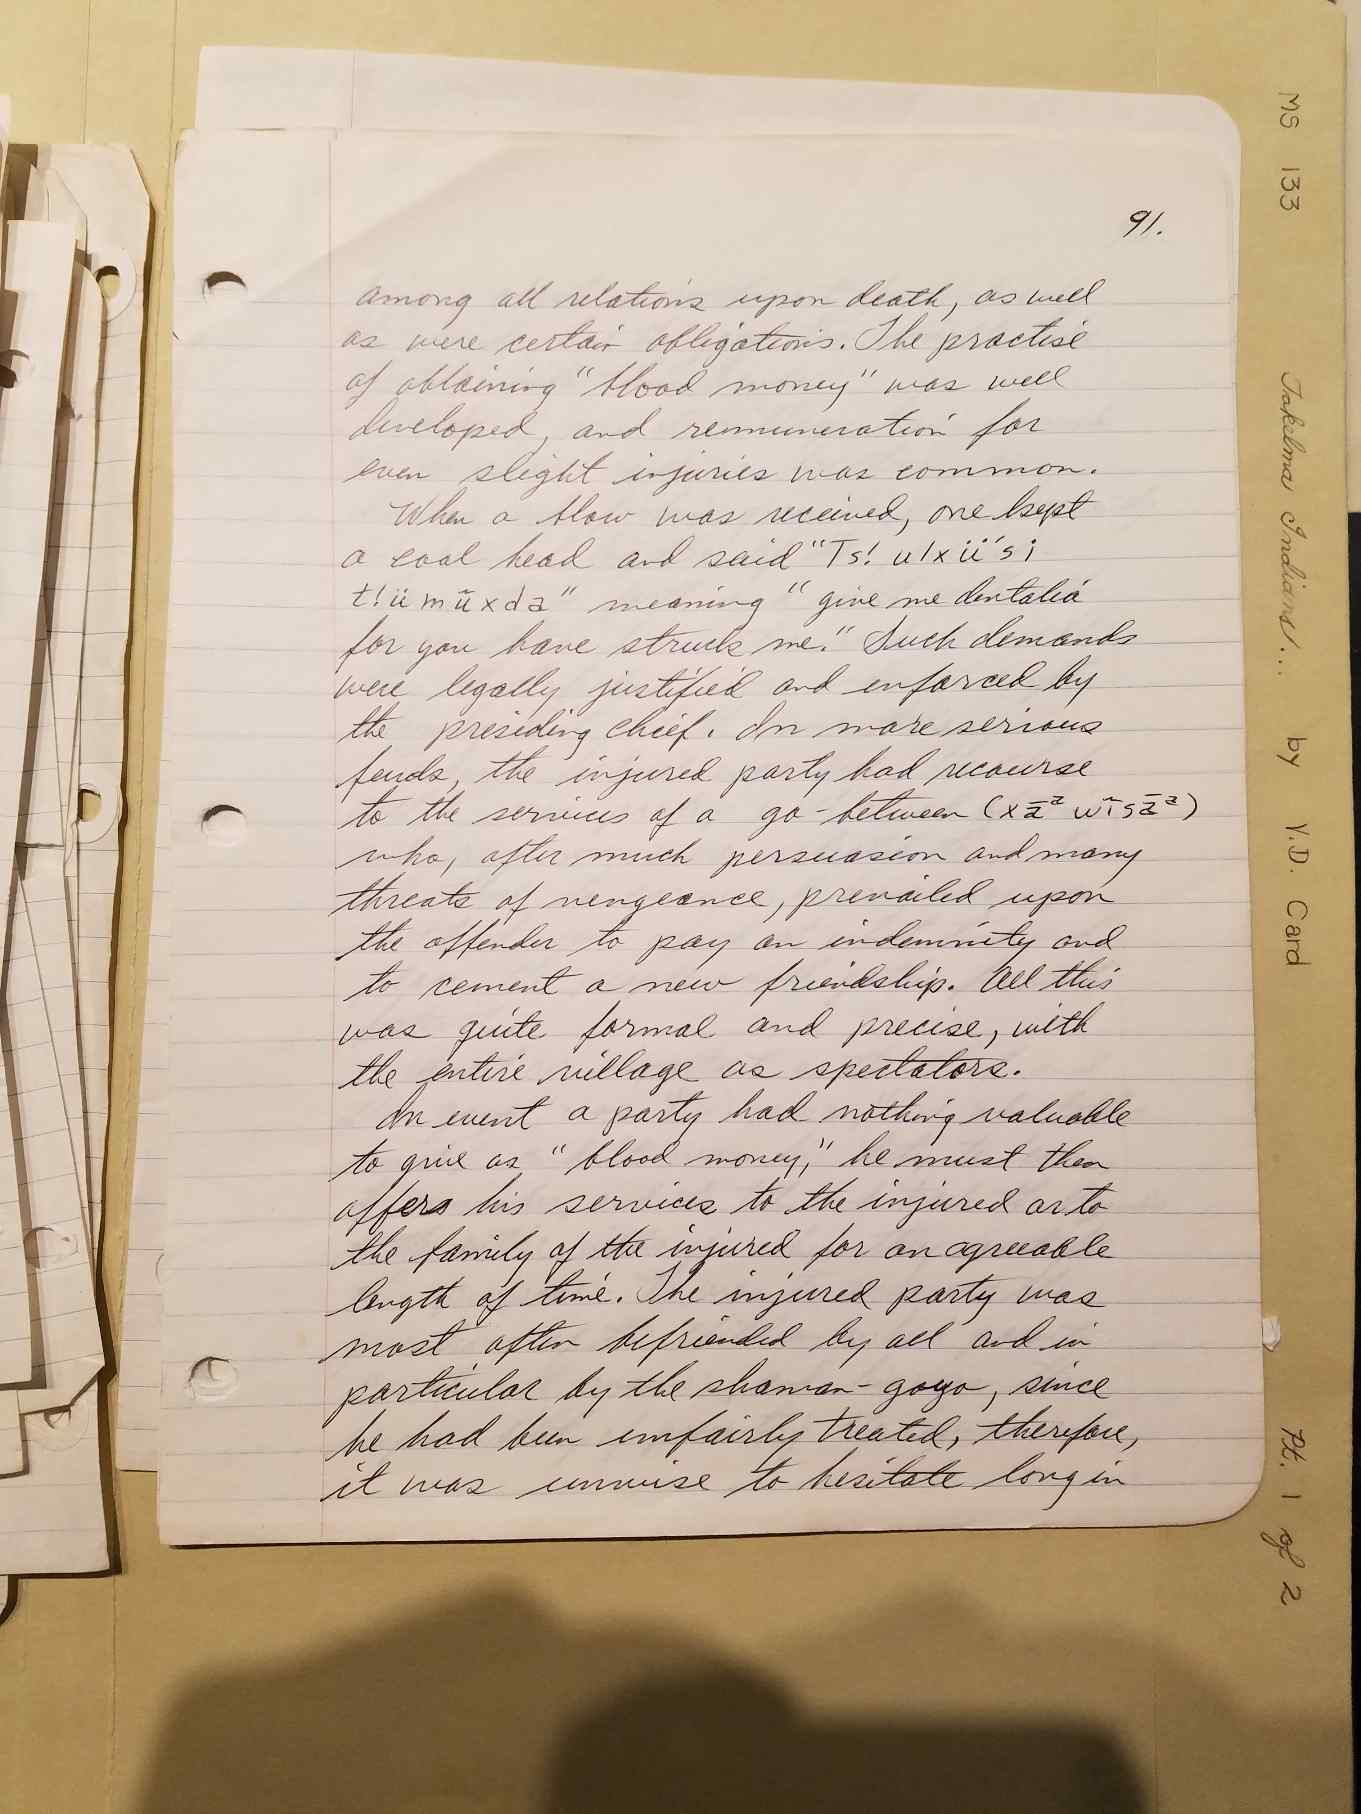 91.
among all relations upon death, as well
as were certain obligations. The practise
of obtaining "blood money" was well
developed, and remuneration for
even slight injuries was common.
When a blow was received, one kept
a cool head and said "Ts! ulxü´si
t!ümũxda" meaning "give me dentalia
for you have struck me." Such demands
were legally justified and enforced by
the presiding chief. In more serious
feuds, the injured party had recourse
to the services of a go-between (xāᵃ wĩsāᵃ)
who, after much persuasion and many
threats of vengeance, prevailed upon
the offender to pay an indemnity and
to cement a new friendship. All this
was quite formal and precise, with
the entire village as spectators.
In event a party had nothing valuable
to give as "blood money," he must then
offer his services to the injured or to
the family of the injured for an agreeable
length of time. The injured party was
most often befriended by all and in
particular by the shaman-goyo, since
he had been unfairly treated, therefore,
it was unwise to hesitate long in
MS 133 Takelma Indians... by Y.D. Card Pt. 1 of 2